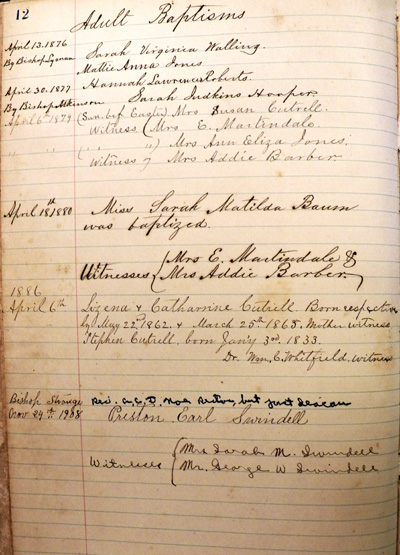 12
Adult Baptisms
April 13. 1876 Sarah Virginia Walling.
By Bishop Lyman Mattie Anna Jones
April 30. 1877 Hannah Lawrence Roberts
By Bishop Atkinson Sarah Judkins Hooper
April 6th 1879 (Sun. bef Easter) Mrs Susan Cutrell.
Witness (Mrs. E. Martindale.
" " ( " " ) Mrs Ann Eliza Jones.
Witness Mrs Addie Barber.
April 18th 1880 Miss Sarah Matilda Baum
was baptized.
Witnesses (Mrs E. Martindale &
Mrs Addie Barber.
1886
April 6th Lizena & Catharine Cutrell. Born respective
by May 22d, 1862, & March 25th 1865. Mother witness
Stephen Cutrell, born Jan'y 3rd, 1833.
Dr. Wm. C. Whitfield, witness
Bishop Strange Rev. A. C. D. Noe Rector, but just deacon
Nov 24th 1908 Preston Earl Swindell
Witnesses (Mrs Sarah M. Swindell
Mr. George W Swindell